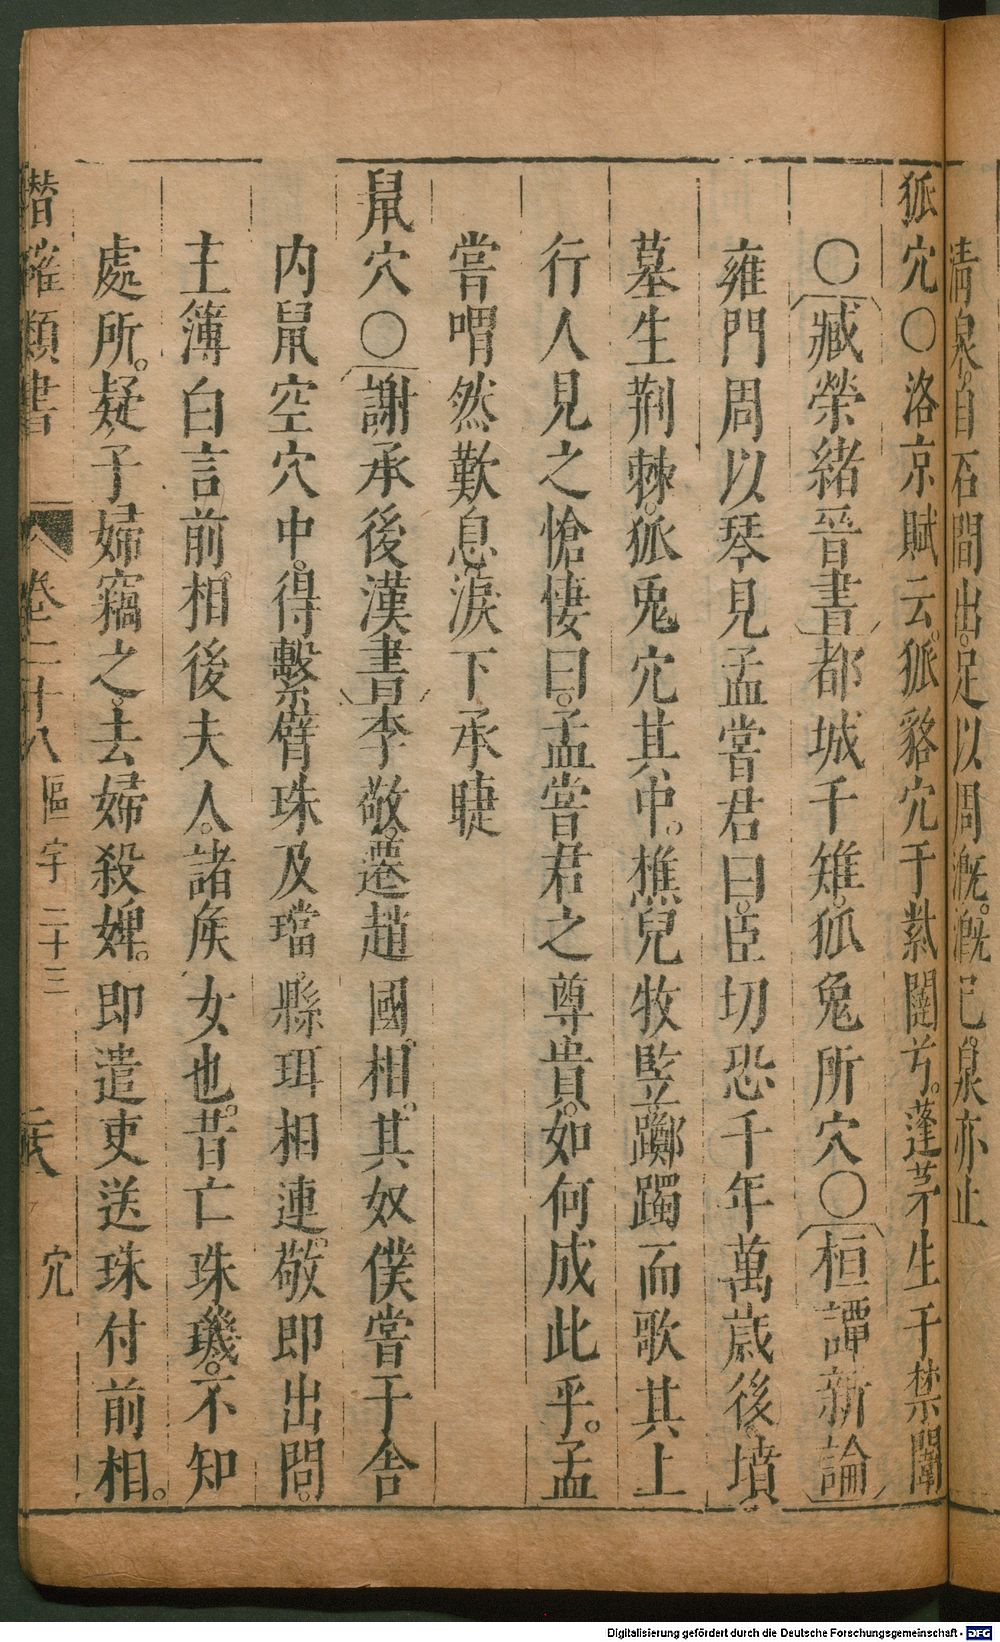 清泉。自石間出。足以周漑。漑已。泉亦止
狐穴〇洛京賦云。狐貉穴于縶闥兮。蓬茅生于禁闈
〇臧榮緒晉書都城千雉。狐兔所穴〇桓譚新論
雍門周以琴見孟嘗君曰。臣切恐千年萬歲後。墳
墓生荆棘。狐兔穴其中。樵兒牧豎躑躅而歌其上
行人見之愴悽曰。孟嘗君之尊貴。如何成此乎。孟
嘗喟然歎息淚下承睫
鼠穴〇謝承後漢書李敬。遷趙國相。其奴僕嘗于舍
内鼠空穴中。得繫臂珠及璫。縣珥相連。敬即出問。
主簿白言前。相後夫人。諸矦女也。昔亡珠璣。不知
處所。疑子婦竊之。去婦殺婢。即遣吏送珠付前相。
潛確類書 卷二十八 區字 二十三 穴
Digitalisierung gefördert durch die Deutsche Forschungsgemeinschaft - DFG